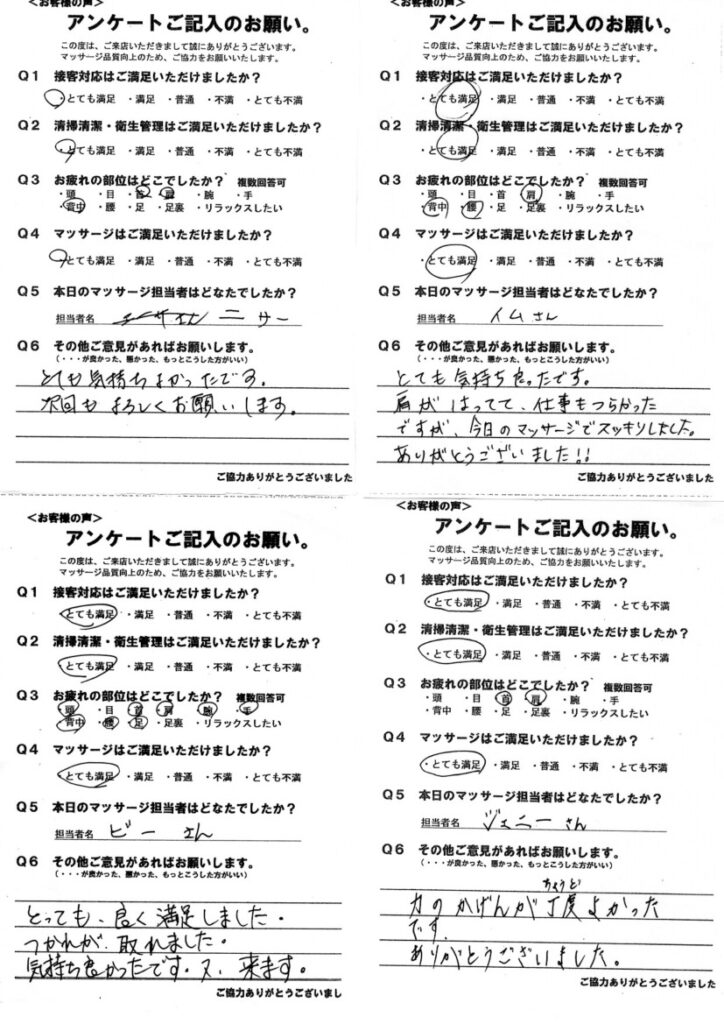 ＜お客様の声＞
アンケートご記入のお願い。
この度は、ご来店いただきまして誠にありがとうございます。
マッサージ品質向上のため、ご協力をお願いいたします。
Q1 接客対応はご満足いただけましたか？
・とても満足 ・満足 ・普通 ・不満 ・とても不満
Q2 清掃清潔・衛生管理はご満足いただけましたか？
・とても満足 ・満足 ・普通 ・不満 ・とても不満
Q3 お疲れの部位はどこでしたか？ 複数回答可
・頭 ・目 ・首 ・肩 ・腕 ・手
・背中 ・腰 ・足 ・足裏 ・リラックスしたい
Q4 マッサージはご満足いただけましたか？
・とても満足 ・満足 ・普通 ・不満 ・とても不満
Q5 本日のマッサージ担当者はどなたでしたか？
担当者名 ニサー
Q6 その他ご意見があればお願いします。
（・・・が良かった、悪かった、もっとこうした方がいい）
とても気持ちよかったです。
次回もよろしくお願いします。
ご協力ありがとうございました
＜お客様の声＞
アンケートご記入のお願い。
この度は、ご来店いただきまして誠にありがとうございます。
マッサージ品質向上のため、ご協力をお願いいたします。
Q1 接客対応はご満足いただけましたか？
・とても満足 ・満足 ・普通 ・不満 ・とても不満
Q2 清掃清潔・衛生管理はご満足いただけましたか？
・とても満足 ・満足 ・普通 ・不満 ・とても不満
Q3 お疲れの部位はどこでしたか？ 複数回答可
・頭 ・目 ・首 ・肩 ・腕 ・手
・背中 ・腰 ・足 ・足裏 ・リラックスしたい
Q4 マッサージはご満足いただけましたか？
・とても満足 ・満足 ・普通 ・不満 ・とても不満
Q5 本日のマッサージ担当者はどなたでしたか？
担当者名 イムさん
Q6 その他ご意見があればお願いします。
（・・・が良かった、悪かった、もっとこうした方がいい）
とても気持ち良ったです。
肩がはってて、仕事もつらかった
ですが、今日のマッサージでスッキリしました。
ありがとうございました!!
ご協力ありがとうございました
＜お客様の声＞
アンケートご記入のお願い。
この度は、ご来店いただきまして誠にありがとうございます。
マッサージ品質向上のため、ご協力をお願いいたします。
Q1 接客対応はご満足いただけましたか？
・とても満足 ・満足 ・普通 ・不満 ・とても不満
Q2 清掃清潔・衛生管理はご満足いただけましたか？
・とても満足 ・満足 ・普通 ・不満 ・とても不満
Q3 お疲れの部位はどこでしたか？ 複数回答可
・頭 ・目 ・首 ・肩 ・腕 ・手
・背中 ・腰 ・足 ・足裏 ・リラックスしたい
Q4 マッサージはご満足いただけましたか？
・とても満足 ・満足 ・普通 ・不満 ・とても不満
Q5 本日のマッサージ担当者はどなたでしたか？
担当者名 ビーさん
Q6 その他ご意見があればお願いします。
（・・・が良かった、悪かった、もっとこうした方がいい）
とっても、良く満足しました。
つかれが、取れました。
気持ち良かったです。又、来ます。
ご協力ありがとうございまし
＜お客様の声＞
アンケートご記入のお願い。
この度は、ご来店いただきまして誠にありがとうございます。
マッサージ品質向上のため、ご協力をお願いいたします。
Q1 接客対応はご満足いただけましたか？
・とても満足 ・満足 ・普通 ・不満 ・とても不満
Q2 清掃清潔・衛生管理はご満足いただけましたか？
・とても満足 ・満足 ・普通 ・不満 ・とても不満
Q3 お疲れの部位はどこでしたか？ 複数回答可
・頭 ・目 ・首 ・肩 ・腕 ・手
・背中 ・腰 ・足 ・足裏 ・リラックスしたい
Q4 マッサージはご満足いただけましたか？
・とても満足 ・満足 ・普通 ・不満 ・とても不満
Q5 本日のマッサージ担当者はどなたでしたか？
担当者名 ジェニーさん
Q6 その他ご意見があればお願いします。
（・・・が良かった、悪かった、もっとこうした方がいい）
ちょうど
力のかげんが丁度よかった
です
ありがとうございました。
ご協力ありがとうございました